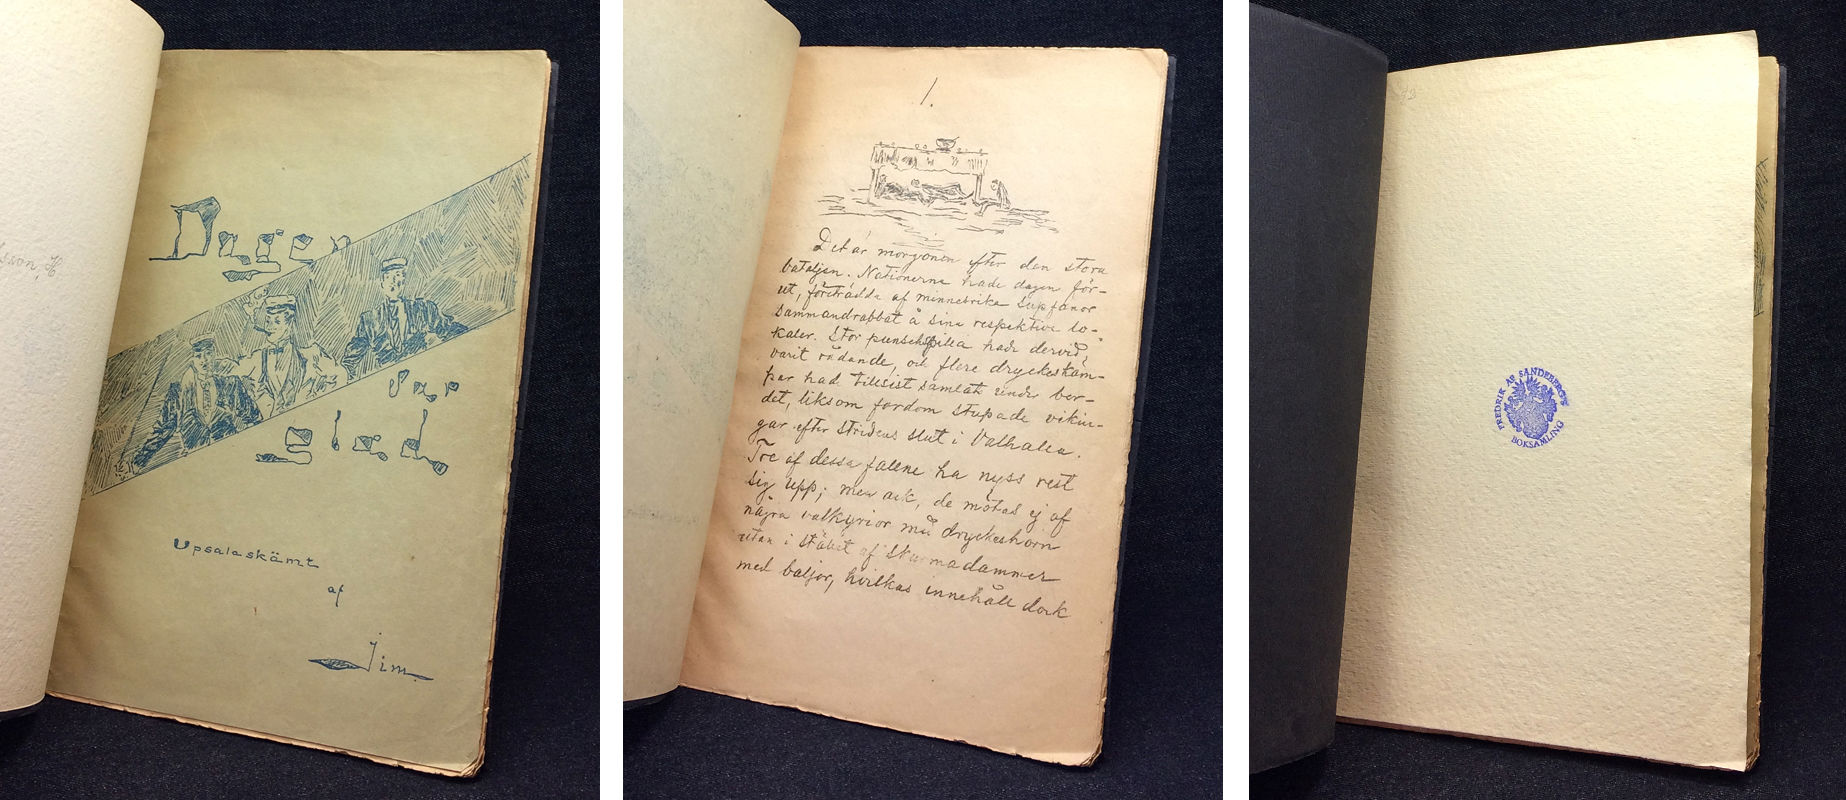 sson, H
Dagen
var
glad
Upsalaskämt
af
Jim.
1.
Det är morgonen efter den stora
bataljen. Nationerna hade dagen för-
ut, förträdda af minnesrika supfanor
sammandrabbat å sina respektive lo-
kaler. Stor punschspilla hade dervid
varit rådande, och flere dryckeskäm-
par had tillsist samlats under bor-
det, liksom fordom stupade vikin-
gar efter stridens slut i Valhalla.
Tre af dessa fallne ha nyss rest
sig upp; men ack, de mötas ej af
några valkyrior med dryckeshorn
utan i stället af skurmadammer
med baljor, hvilkas innehåll dock
93
FREDRIK AF SANDEBERG'S
BOKSAMLING